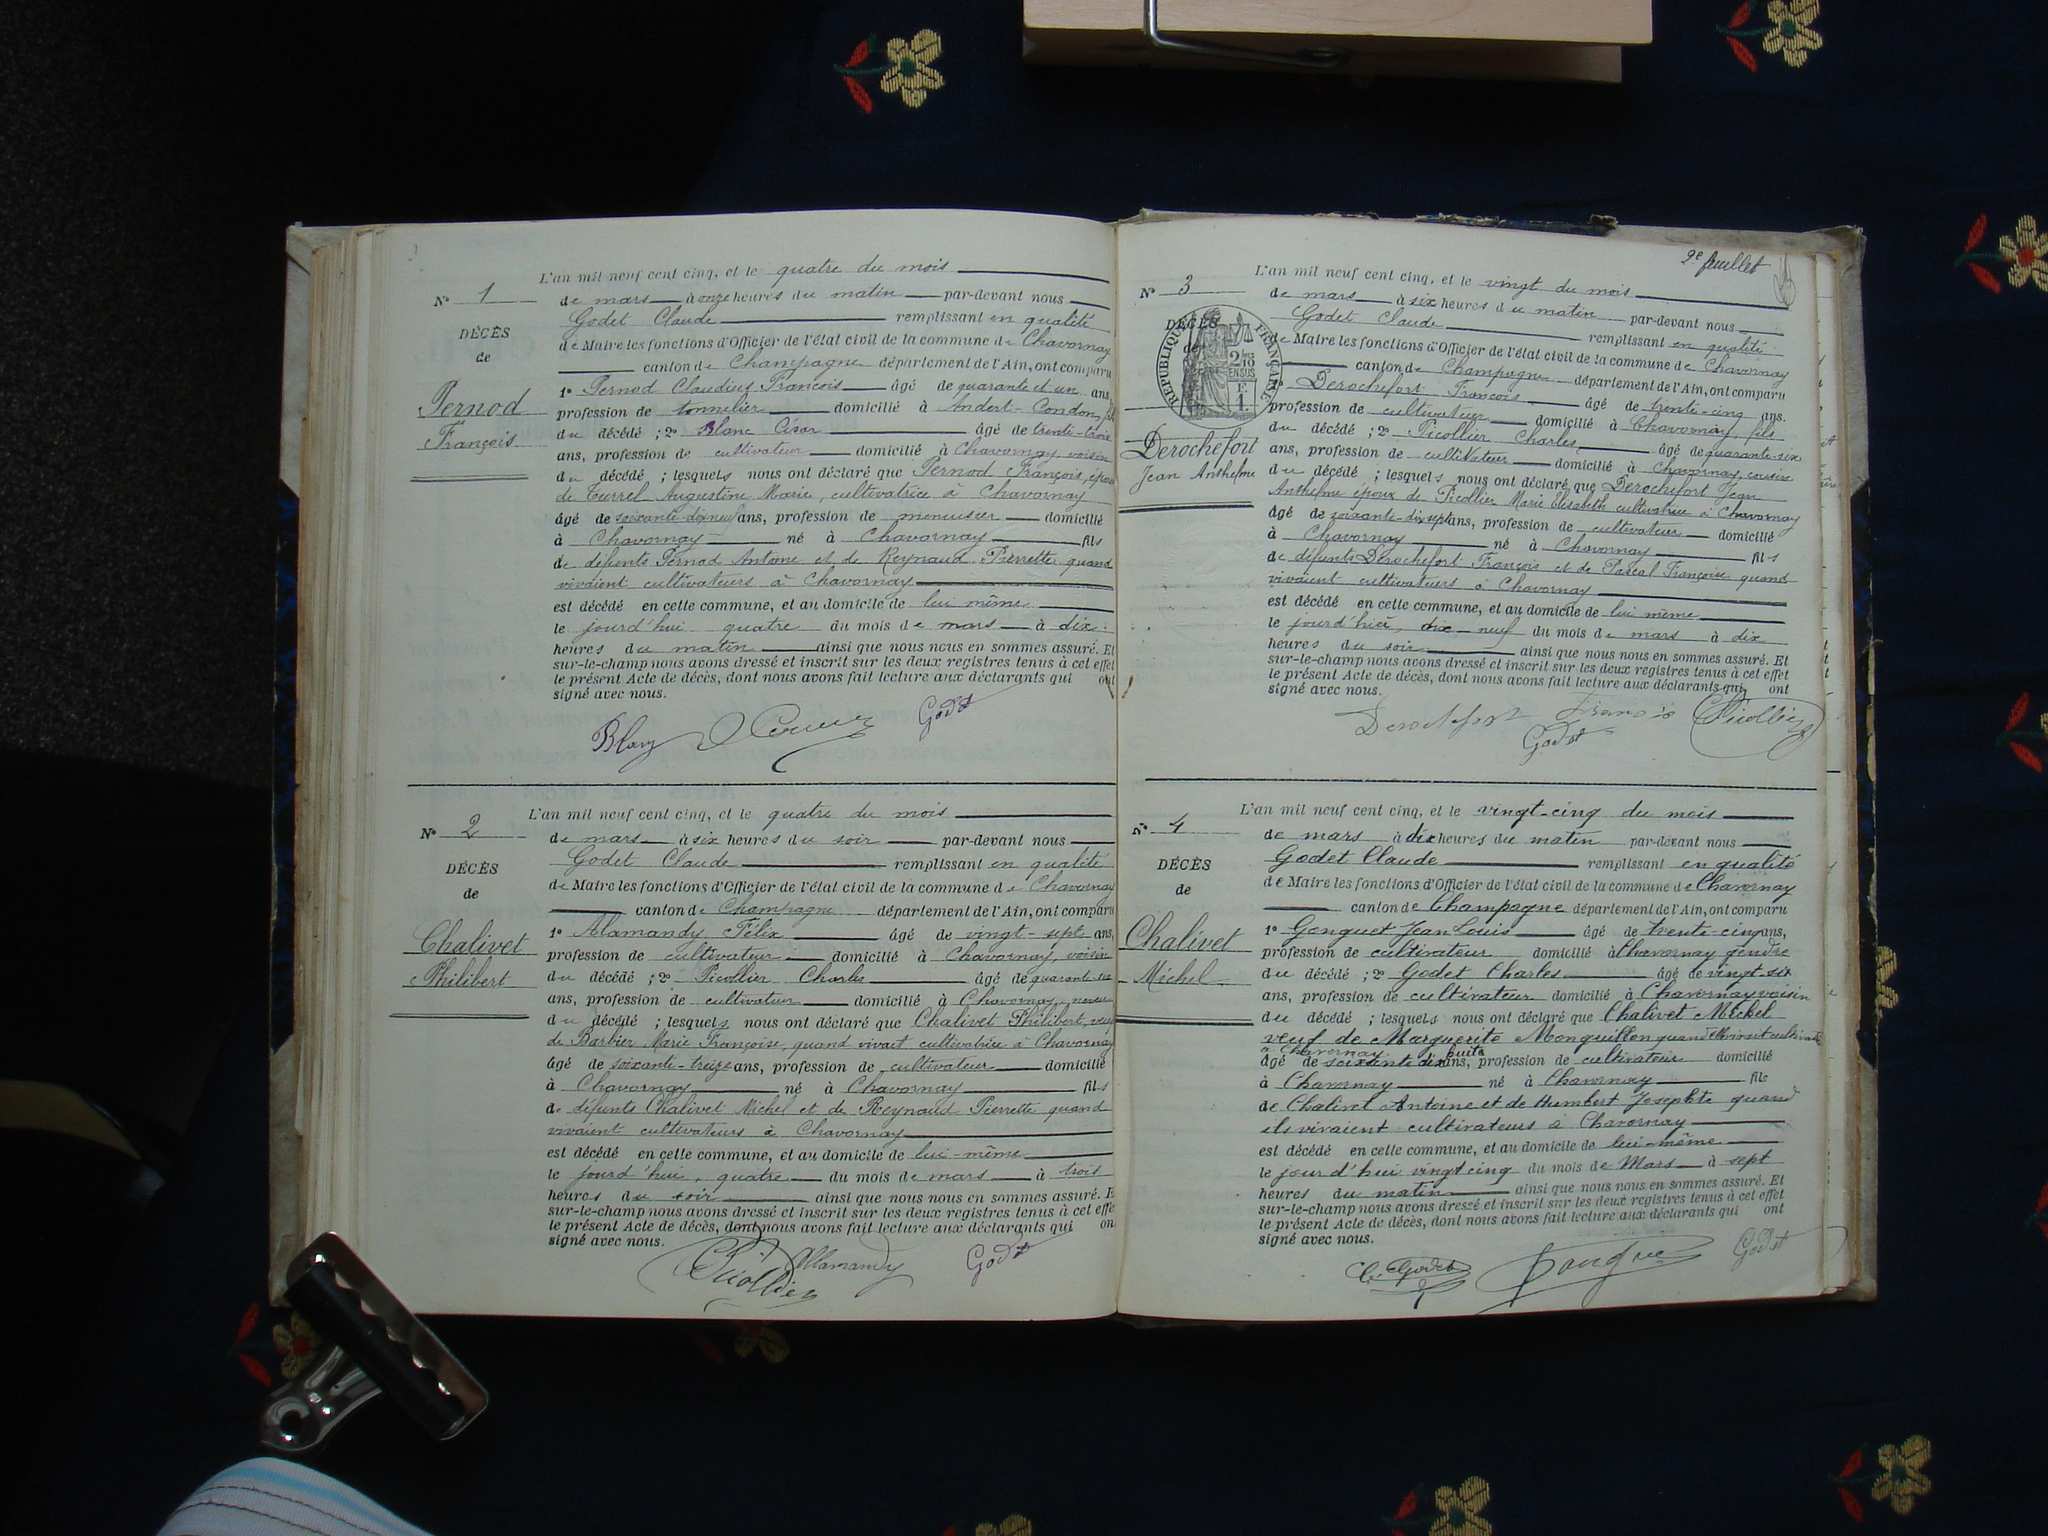 L'an mil neuf cent cinq, et le quatre du mois
N° 1 de mars à onze heures du matin par-devant nous
Godet Claude remplissant en qualité
DÉCÈS
de Maire les fonctions d'Officier de l'état civil de la commune de Chavornay
de
canton de Champagne département de l'Ain, ont comparu
1° Pernod Claudius François âgé de quarante et un ans,
Pernod
profession de tonnelier domicilié à Andert-Condon, fils
François
du décédé ; 2° Blanc César âgé de trente-trois
ans, profession de cultivateur domicilié à Chavornay, voisin
du décédé ; lesquels nous ont déclaré que Pernod François, époux
de Turrel Augustine Marie, cultivatrice à Chavornay
âgé de soixante-dix-neuf ans, profession de menuisier domicilié
à Chavornay né à Chavornay fils
de défunts Pernod Antoine et de Reynaud Pierrette quand
vivaient cultivateurs à Chavornay
est décédé en cette commune, et au domicile de lui même
le jourd'hui quatre du mois de mars à dix
heures du matin ainsi que nous nous en sommes assuré. Et
sur-le-champ nous avons dressé et inscrit sur les deux registres tenus à cet effet
le présent Acte de décès, dont nous avons fait lecture aux déclarants qui ont
signé avec nous.
Blanc Godet
L'an mil neuf cent cinq, et le quatre du mois
N° 2 de mars à six heures du soir par-devant nous
Godet Claude remplissant en qualité
DÉCÈS
de Maire les fonctions d'Officier de l'état civil de la commune de Chavornay
de
canton de Champagne département de l'Ain, ont comparu
1° Alamandy Félix âgé de vingt-sept ans,
Chalivet
profession de cultivateur domicilié à Chavornay, voisin
Philibert
du décédé ; 2° Picollier Charles âgé de quarante-six
ans, profession de cultivateur domicilié à Chavornay, neveu
du décédé ; lesquels nous ont déclaré que Chalivet Philibert, veuf
de Barbier Marie Françoise, quand vivait cultivatrice à Chavornay
âgé de soixante-treize ans, profession de cultivateur domicilié
à Chavornay né à Chavornay fils
de défunts Chalivet Michel et de Reynaud Pierrette quand
vivaient cultivateurs à Chavornay
est décédé en cette commune, et au domicile de lui-même
le jourd'hui, quatre du mois de mars à trois
heures du soir ainsi que nous nous en sommes assuré. Et
sur-le-champ nous avons dressé et inscrit sur les deux registres tenus à cet effet
le présent Acte de décès, dont nous avons fait lecture aux déclarants qui ont
signé avec nous.
Picollier Allamandy Godet
2e feuillet
L'an mil neuf cent cinq, et le vingt du mois
N° 3 de mars à six heures du matin par-devant nous
Godet Claude remplissant en qualité
DÉCÈS
de Maire les fonctions d'Officier de l'état civil de la commune de Chavornay
de
RÉPUBLIQUE FRANÇAISE
canton de Champagne département de l'Ain, ont comparu
1° Derochefort François âgé de trente-cinq ans.
profession de cultivateur domicilié à Chavornay, fils
Derochefort
du décédé ; 2° Picollier Charles âgé de quarante-six
Jean Anthelme
ans, profession de cultivateur domicilié à Chavornay, cousin
du décédé ; lesquels nous ont déclaré que Derochefort Jean
Anthelme époux de Picollier Marie Elisabeth cultivatrice à Chavornay
âgé de soixante-dix-sept ans, profession de cultivateur domicilié
à Chavornay né à Chavornay fils
de défunts Derochefort François et de Pascal Françoise quand
vivaient cultivateurs à Chavornay
est décédé en cette commune, et au domicile de lui même
le jourd'hier, dix-neuf du mois de mars à dix
heures du soir ainsi que nous nous en sommes assuré. Et
sur-le-champ nous avons dressé et inscrit sur les deux registres tenus à cet effet
le présent Acte de décès, dont nous avons fait lecture aux déclarants qui ont
signé avec nous.
Derochefort François Picollier
Godet
L'an mil neuf cent cinq, et le vingt-cinq du mois
N° 4 de mars à dix heures du matin par-devant nous
Godet Claude remplissant en qualité
DÉCÈS
de Maire les fonctions d'Officier de l'état civil de la commune de Chavornay
de
canton de Champagne département de l'Ain, ont comparu
1° Gonguet Jean Louis âgé de trente-cinq ans,
Chalivet
profession de cultivateur domicilié à Chavornay gendre
du décédé ; 2° Godet Charles âgé de vingt-six
Michel
ans, profession de cultivateur domicilié à Chavornay voisin
du décédé ; lesquels nous ont déclaré que Chalivet Michel
veuf de Marguerite Monguillon quand elle vivait cultivatrice
à Chavornay huit
âgé de soixante dix ans, profession de cultivateur domicilié
à Chavornay né à Chavornay fils
de Chalivet Antoine et de Humbert Josephte quand
ils vivaient cultivateurs à Chavornay
est décédé en cette commune, et au domicile de lui-même
le jour d'hui vingt cinq du mois de Mars à sept
heures du matin ainsi que nous nous en sommes assuré. Et
sur-le-champ nous avons dressé et inscrit sur les deux registres tenus à cet effet
le présent Acte de décès, dont nous avons fait lecture aux déclarants qui ont
signé avec nous.
Ch. Godet Godet